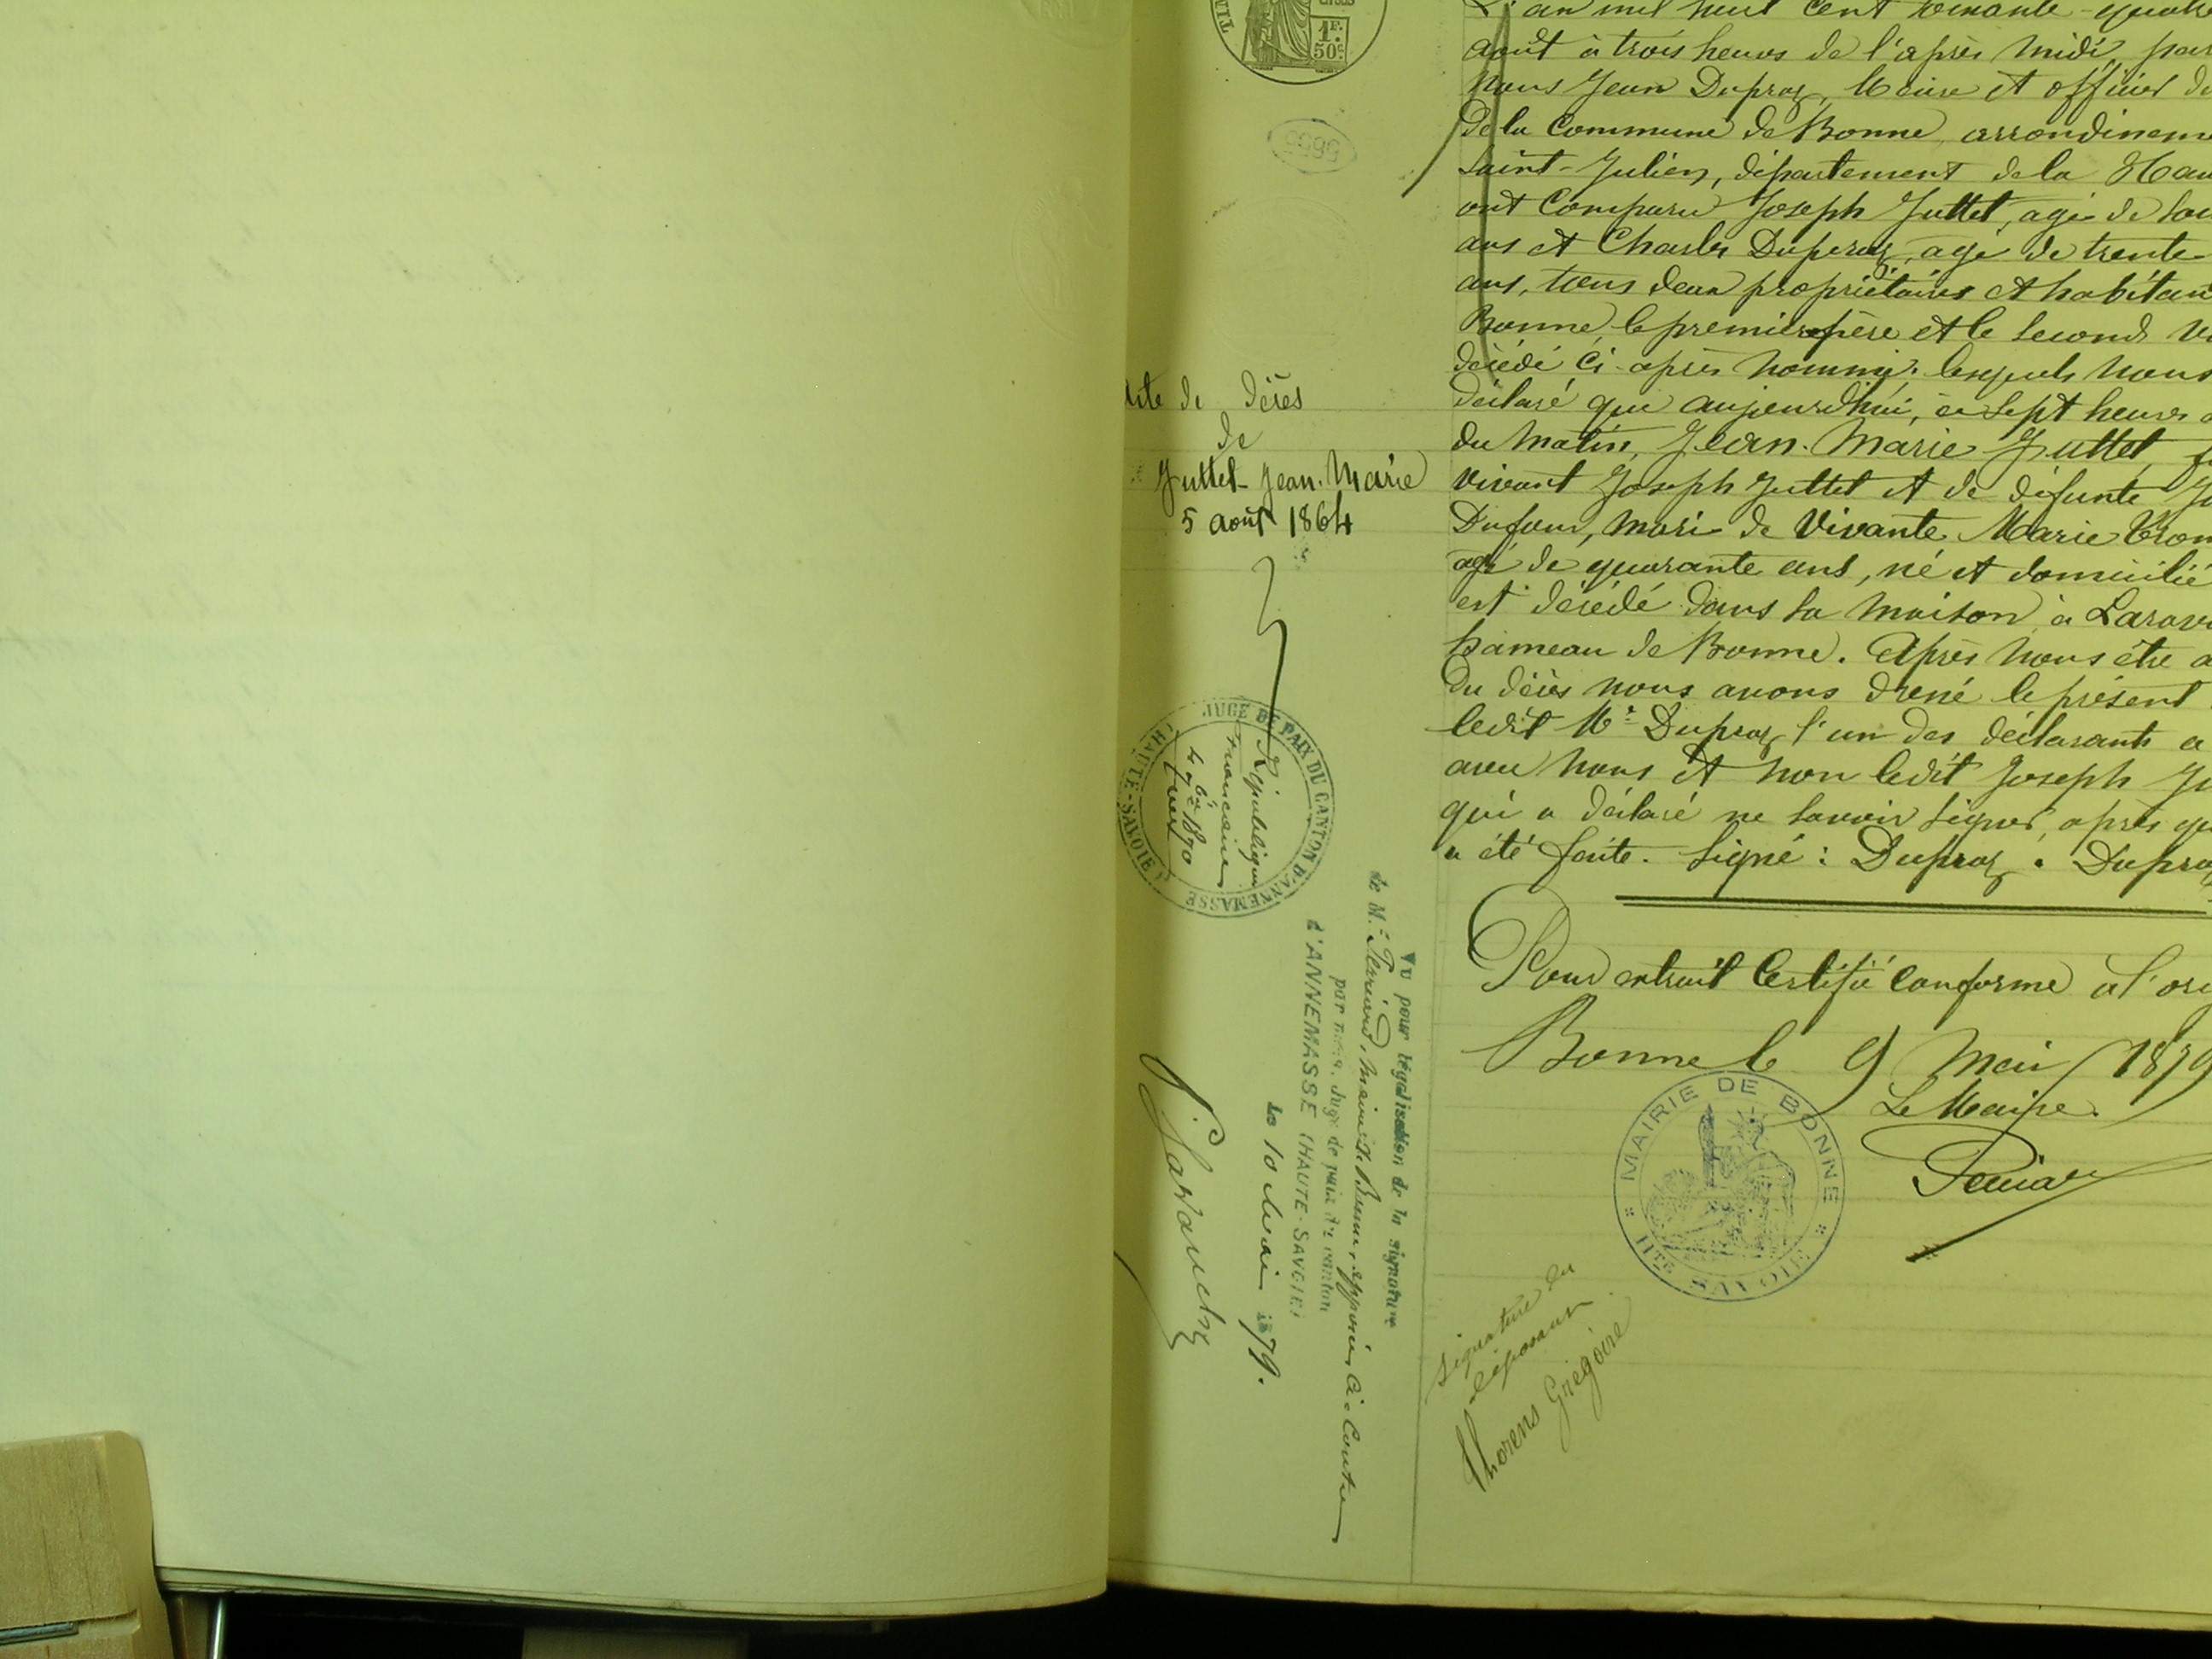 1F.
50c
L'an mil huit cent soixante-quatre
août à trois heures de l'après midi, par
Nous Jean Dupraz, Maire et officier de
de la Commune de Bonne, arrondissem
Saint-Julien, département de la Hau
ont Comparu Joseph Juttet, agé de
ans et Charles Dupraz, agé de trente-
ans, tous deux propriétaires et habitan
Bonne, le premier père et le second
décédé ci-après nommé. lesquels nous
déclaré que aujourd'hui, à sept heures
du matin, Jean-Marie Juttet,
vivant Joseph Juttet et de défunte
Dufour, mari de Vivante Marie
agé de quarante ans, né et domicilié
est décédé dans sa maison, à
hameau de Bonne. Après nous être a
Du décès nous avons dressé le présent
ledit Mr Dupraz l'un des déclarants a
avec nous et non ledit Joseph Ju
qui a déclaré ne savoir signer, après
a été faite. Signé: Dupraz. Dupraz
Acte de décès
de
Juttet Jean-Marie
5 août 1864
JUGE DE PAIX DU CANTON D'ANNEMASSE
(HAUTE-SAVOIE)
République
française
1870
Vu pour légalisation de la signature
de Mr Perriard, Maire de Bonne, apposée Ci-Contre
par nous, Juge de paix du canton
d'ANNEMASSE (HAUTE-SAVOIE)
Le 10 Mai 1879.
Pour extrait Certifié conforme à l'ori
Bonne le 9 Mai 1879
Le Maire.
MAIRIE DE BONNE
Hte SAVOIE
signature du
déposant
Thorens Grégoire